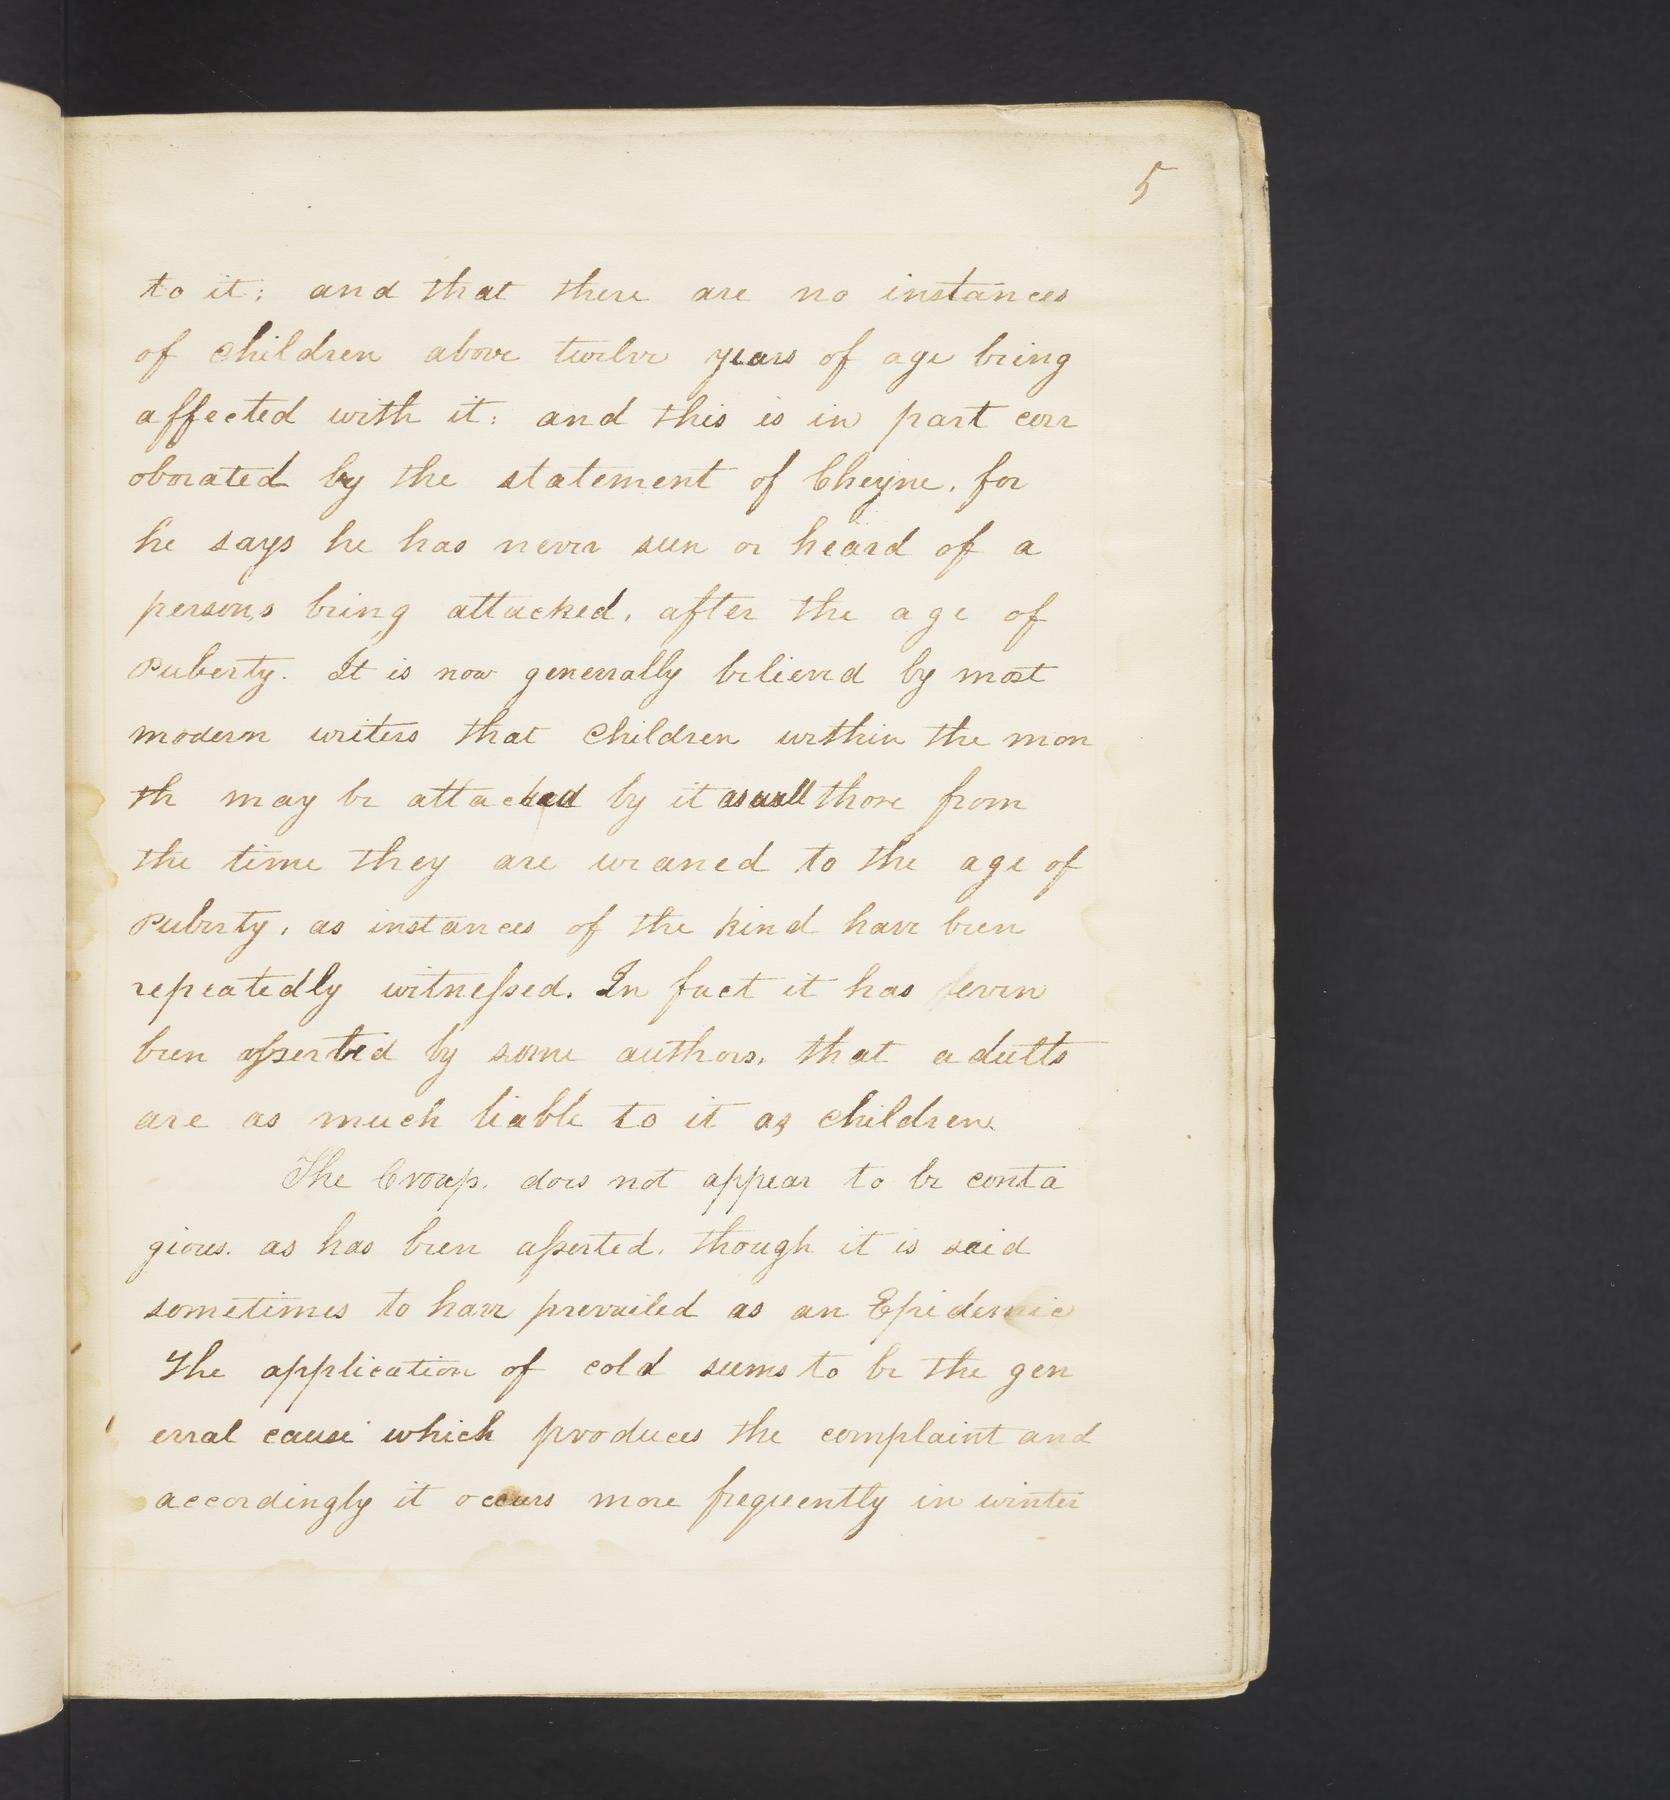 5
to it; and that there are no instances
of children above twelve years of age being
affected with it: and this is in part corr
oborated by the statement of Cheyne, for
he says he has never seen or heard of a
persons being attacked, after the age of
Puberty. It is now generally believed by most
modern writers that children within the mon
th may be attacked by it as well those from
the time they are weaned to the age of
Puberty, as instances of the kind have been
repeatedly witneſsed. In fact it has even
been aſserted by some authors, that adults
are as much liable to it as children.
The Croup, does not appear to be conta
gious. as has been aſserted, though it is said
sometimes to have prevailed as an Epidemic
The application of cold seems to be the gen
erral cause which produces the complaint and
accordingly it occurs more frequently in winter